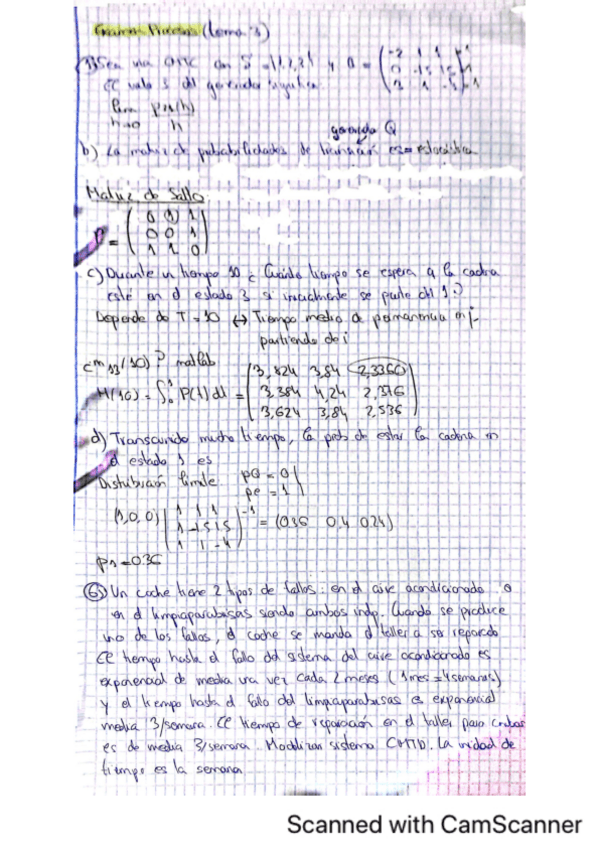 Examen Procesos (tema 3)
1) Sea una CMTC con S = {1,2,3} y Q = ( -2 1 1
0 -1,5 1,5
3 1 -4 )
El valo 3 del generador significa
lim p21(h)
h→0 h
generador Q
b) La matriz de probabilidades de transición es estocástica
Matriz de Salto
P = ( 0 1 1
0 0 1
1 1 0 )
c) Durante un tiempo 10 ¿Cuánto tiempo se espera q la cadena
esté en el estado 3 si inicialmente se parte del 1?
Depende de T=10 ↔ Tiempo medio de permanencia en j
partiendo de i
¿m13(10)? matlab
M(10) = ∫ P(t) dt = ( 3,824 3,84 2,3360
3,384 4,24 2,376
3,624 3,84 2,536 )
d) Transcurrido mucho tiempo, la prob de estar la cadena en
el estado 1 es
Distribución límite pQ = 0
pe = 1
(1,0,0) ( 1 1 1
1 -1,5 1,5
1 1 -4 )^-1 = (0,36 0,4 0,24)
p1 = 0,36
6) Un coche tiene 2 tipos de fallos: en el aire acondicionado o
en el limpiaparabrisas siendo ambos indp. Cuando se produce
uno de los fallos, el coche se manda al taller a ser reparado
El tiempo hasta el fallo del sistema del aire acondicionado es
exponencial de media una vez cada 2 meses (1 mes = 4 semanas)
y el tiempo hasta el fallo del limpiaparabrisas es exponencial
media 3/semana. El tiempo de reparación en el taller para ambas
es de media 3/semana. Modelizar sistema CMTD. La unidad de
tiempo es la semana
Scanned with CamScanner